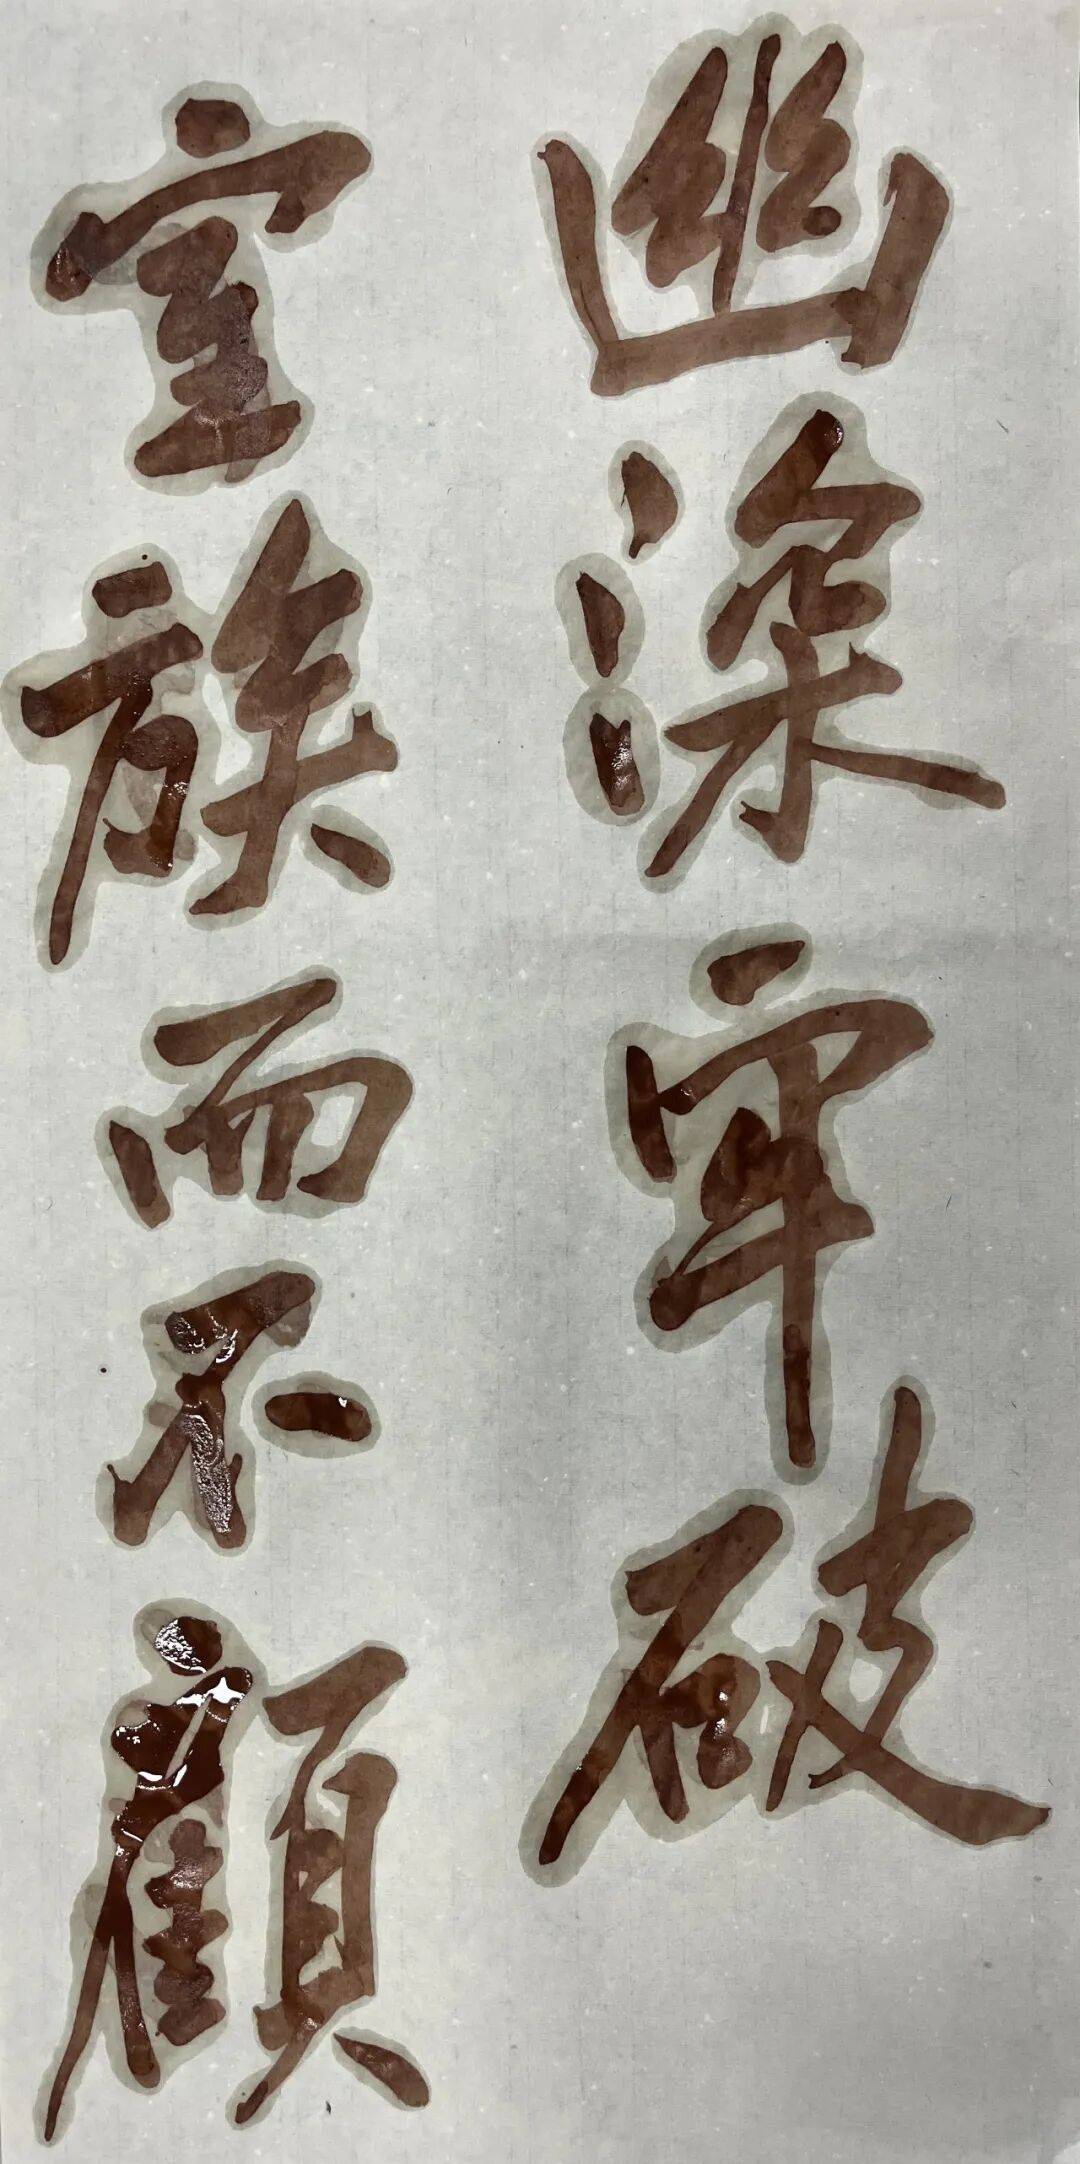 幽深牢破
室族而不顧